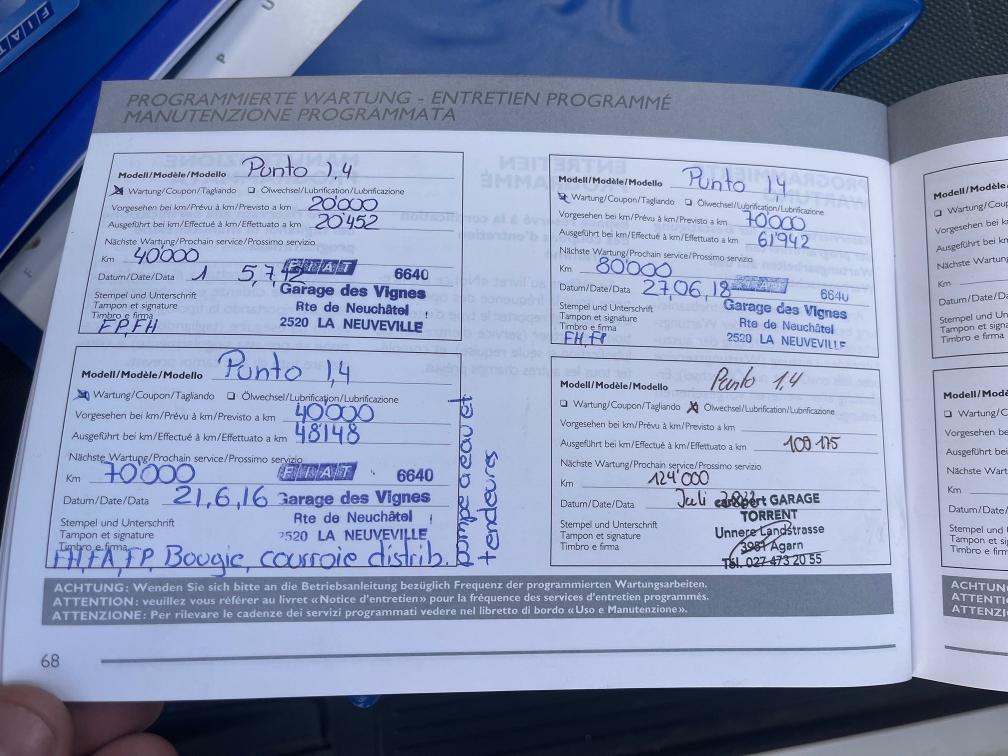 FIAT
PROGRAMMIERTE WARTUNG - ENTRETIEN PROGRAMMÉ
MANUTENZIONE PROGRAMMATA
Modell/Modèle/Modello Punto 1,4
Wartung/Coupon/Tagliando Ölwechsel/Lubrification/Lubrificazione
Vorgesehen bei km/Prévu à km/Previsto a km 20'000
Ausgeführt bei km/Effectué à km/Effettuato a km 20'452
Nächste Wartung/Prochain service/Prossimo servizio
Km 40'000
Datum/Date/Data 1 5,7,
FIAT 6640
Garage des Vignes
Stempel und Unterschrift
Rte de Neuchâtel
Tampon et signature
2520 LA NEUVEVILLE
Timbro e firma
FP, FH
Modell/Modèle/Modello Punto 1,4
Wartung/Coupon/Tagliando Ölwechsel/Lubrification/Lubrificazione
Vorgesehen bei km/Prévu à km/Previsto a km 40'000
Ausgeführt bei km/Effectué à km/Effettuato a km 48'148
Nächste Wartung/Prochain service/Prossimo servizio
Km 70'000
FIAT 6640
Datum/Date/Data 21,6,16
Garage des Vignes
Stempel und Unterschrift
Rte de Neuchâtel
Tampon et signature
2520 LA NEUVEVILLE
Timbro e firma
FH, FA, FP, Bougie, courroie distrib.
pompe a eau et
tendeurs
Modell/Modèle/Modello Punto 1,4
Wartung/Coupon/Tagliando Ölwechsel/Lubrification/Lubrificazione
Vorgesehen bei km/Prévu à km/Previsto a km 70'000
Ausgeführt bei km/Effectué à km/Effettuato a km 61'942
Nächste Wartung/Prochain service/Prossimo servizio
Km 80'000
Datum/Date/Data 27,06,18
FIAT 6640
Garage des Vignes
Stempel und Unterschrift
Rte de Neuchâtel
Tampon et signature
2520 LA NEUVEVILLE
Timbro e firma
FH, FP
Modell/Modèle/Modello Punto 1.4
Wartung/Coupon/Tagliando Ölwechsel/Lubrification/Lubrificazione
Vorgesehen bei km/Prévu à km/Previsto a km
Ausgeführt bei km/Effectué à km/Effettuato a km 109 175
Nächste Wartung/Prochain service/Prossimo servizio
Km 124'000
Datum/Date/Data Juli
carXpert GARAGE
TORRENT
Stempel und Unterschrift
Unnere Landstrasse
Tampon et signature
3951 Agarn
Timbro e firma
Tél. 027 473 20 55
ACHTUNG: Wenden Sie sich bitte an die Betriebsanleitung bezüglich Frequenz der programmierten Wartungsarbeiten.
ATTENTION: veuillez vous référer au livret «Notice d'entretien» pour la fréquence des services d'entretien programmés.
ATTENZIONE: Per rilevare le cadenze dei servizi programmati vedere nel libretto di bordo «Uso e Manutenzione».
68
Modell/Modèle/M
Wartung/Coup
Vorgesehen bei k
Ausgeführt bei k
Nächste Wartung
Km
Datum/Date/Da
Stempel und Un
Tampon et sign
Timbro e firma
Modell/Mod
Wartung/C
Vorgesehen be
Ausgeführt be
Nächste War
Km
Datum/Date
Stempel und
Tampon et si
Timbro e firm
ACHTUN
ATTENTI
ATTENZI